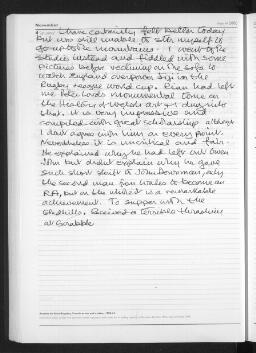 November
I have certainly felt better today
but was still unable to stir myself to
go up to the mountains. I went to the
studio instead and fiddled with some
pictures before reclining on the sofa to
watch England overpower Fiji in the
Rugby League world cup. Rian had left
me Peter Lord's monumental tome on
the History of Welsh art & I dug into
that. It is very impressive and
compiled with great scholarship although
I don't agree with him on every point.
Nevertheless it is uncritical and fair.
He explained why he had left out Owen
John but didn't explain why he gave
such short shrift to John Downman, only
the second man from Wales to become an
RA, but on the whole it is a remarkable
achievement. To supper with the
Gledhills. Received a terrible thrashing
at Scrabble